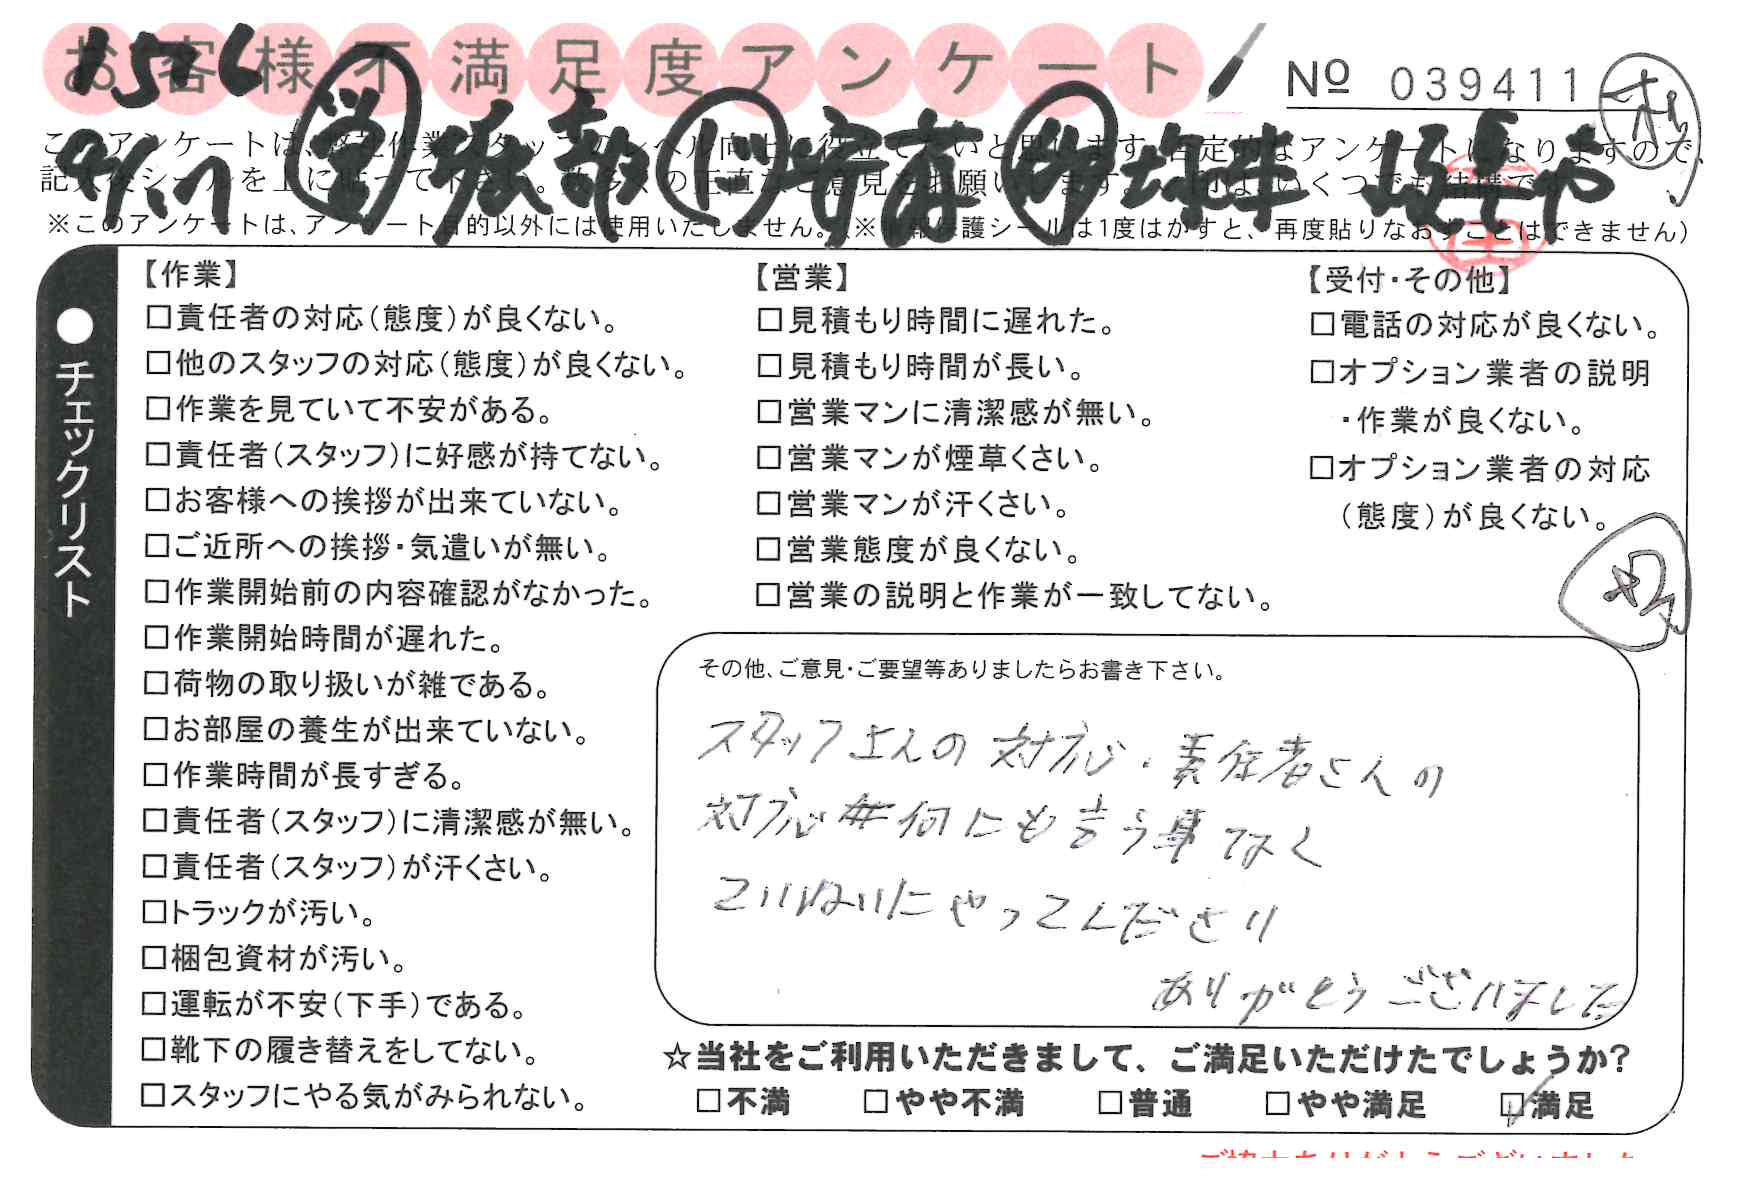 お客様不満足度アンケート
1576
№ 039411
9/17
このアンケートは、弊社作業スタッフのレベル向上に役立てたいと思います。否定的なアンケートになりますので、
記入後シールを上に貼って下さい。数多くの正直なご意見をお願いします。
※このアンケートは、アンケート目的以外には使用いたしません。(※情報保護シールは1度はがすと、再度貼りなおすことはできません)
●チェックリスト
【作業】
□責任者の対応(態度)が良くない。
□他のスタッフの対応(態度)が良くない。
□作業を見ていて不安がある。
□責任者(スタッフ)に好感が持てない。
□お客様への挨拶が出来ていない。
□ご近所への挨拶・気遣いが無い。
□作業開始前の内容確認がなかった。
□作業開始時間が遅れた。
□荷物の取り扱いが雑である。
□お部屋の養生が出来ていない。
□作業時間が長すぎる。
□責任者(スタッフ)に清潔感が無い。
□責任者(スタッフ)が汗くさい。
□トラックが汚い。
□梱包資材が汚い。
□運転が不安(下手)である。
□靴下の履き替えをしてない。
□スタッフにやる気がみられない。
【営業】
□見積もり時間に遅れた。
□見積もり時間が長い。
□営業マンに清潔感が無い。
□営業マンが煙草くさい。
□営業マンが汗くさい。
□営業態度が良くない。
□営業の説明と作業が一致してない。
【受付・その他】
□電話の対応が良くない。
□オプション業者の説明
・作業が良くない。
□オプション業者の対応
(態度)が良くない。
その他、ご意見・ご要望等ありましたらお書き下さい。
スタッフさんの対応・責任者さんの
対応共何にも言う事なく
ていねいにやってくださり
ありがとうございました
☆当社をご利用いただきまして、ご満足いただけたでしょうか?
□不満 □やや不満 □普通 □やや満足 ☑満足